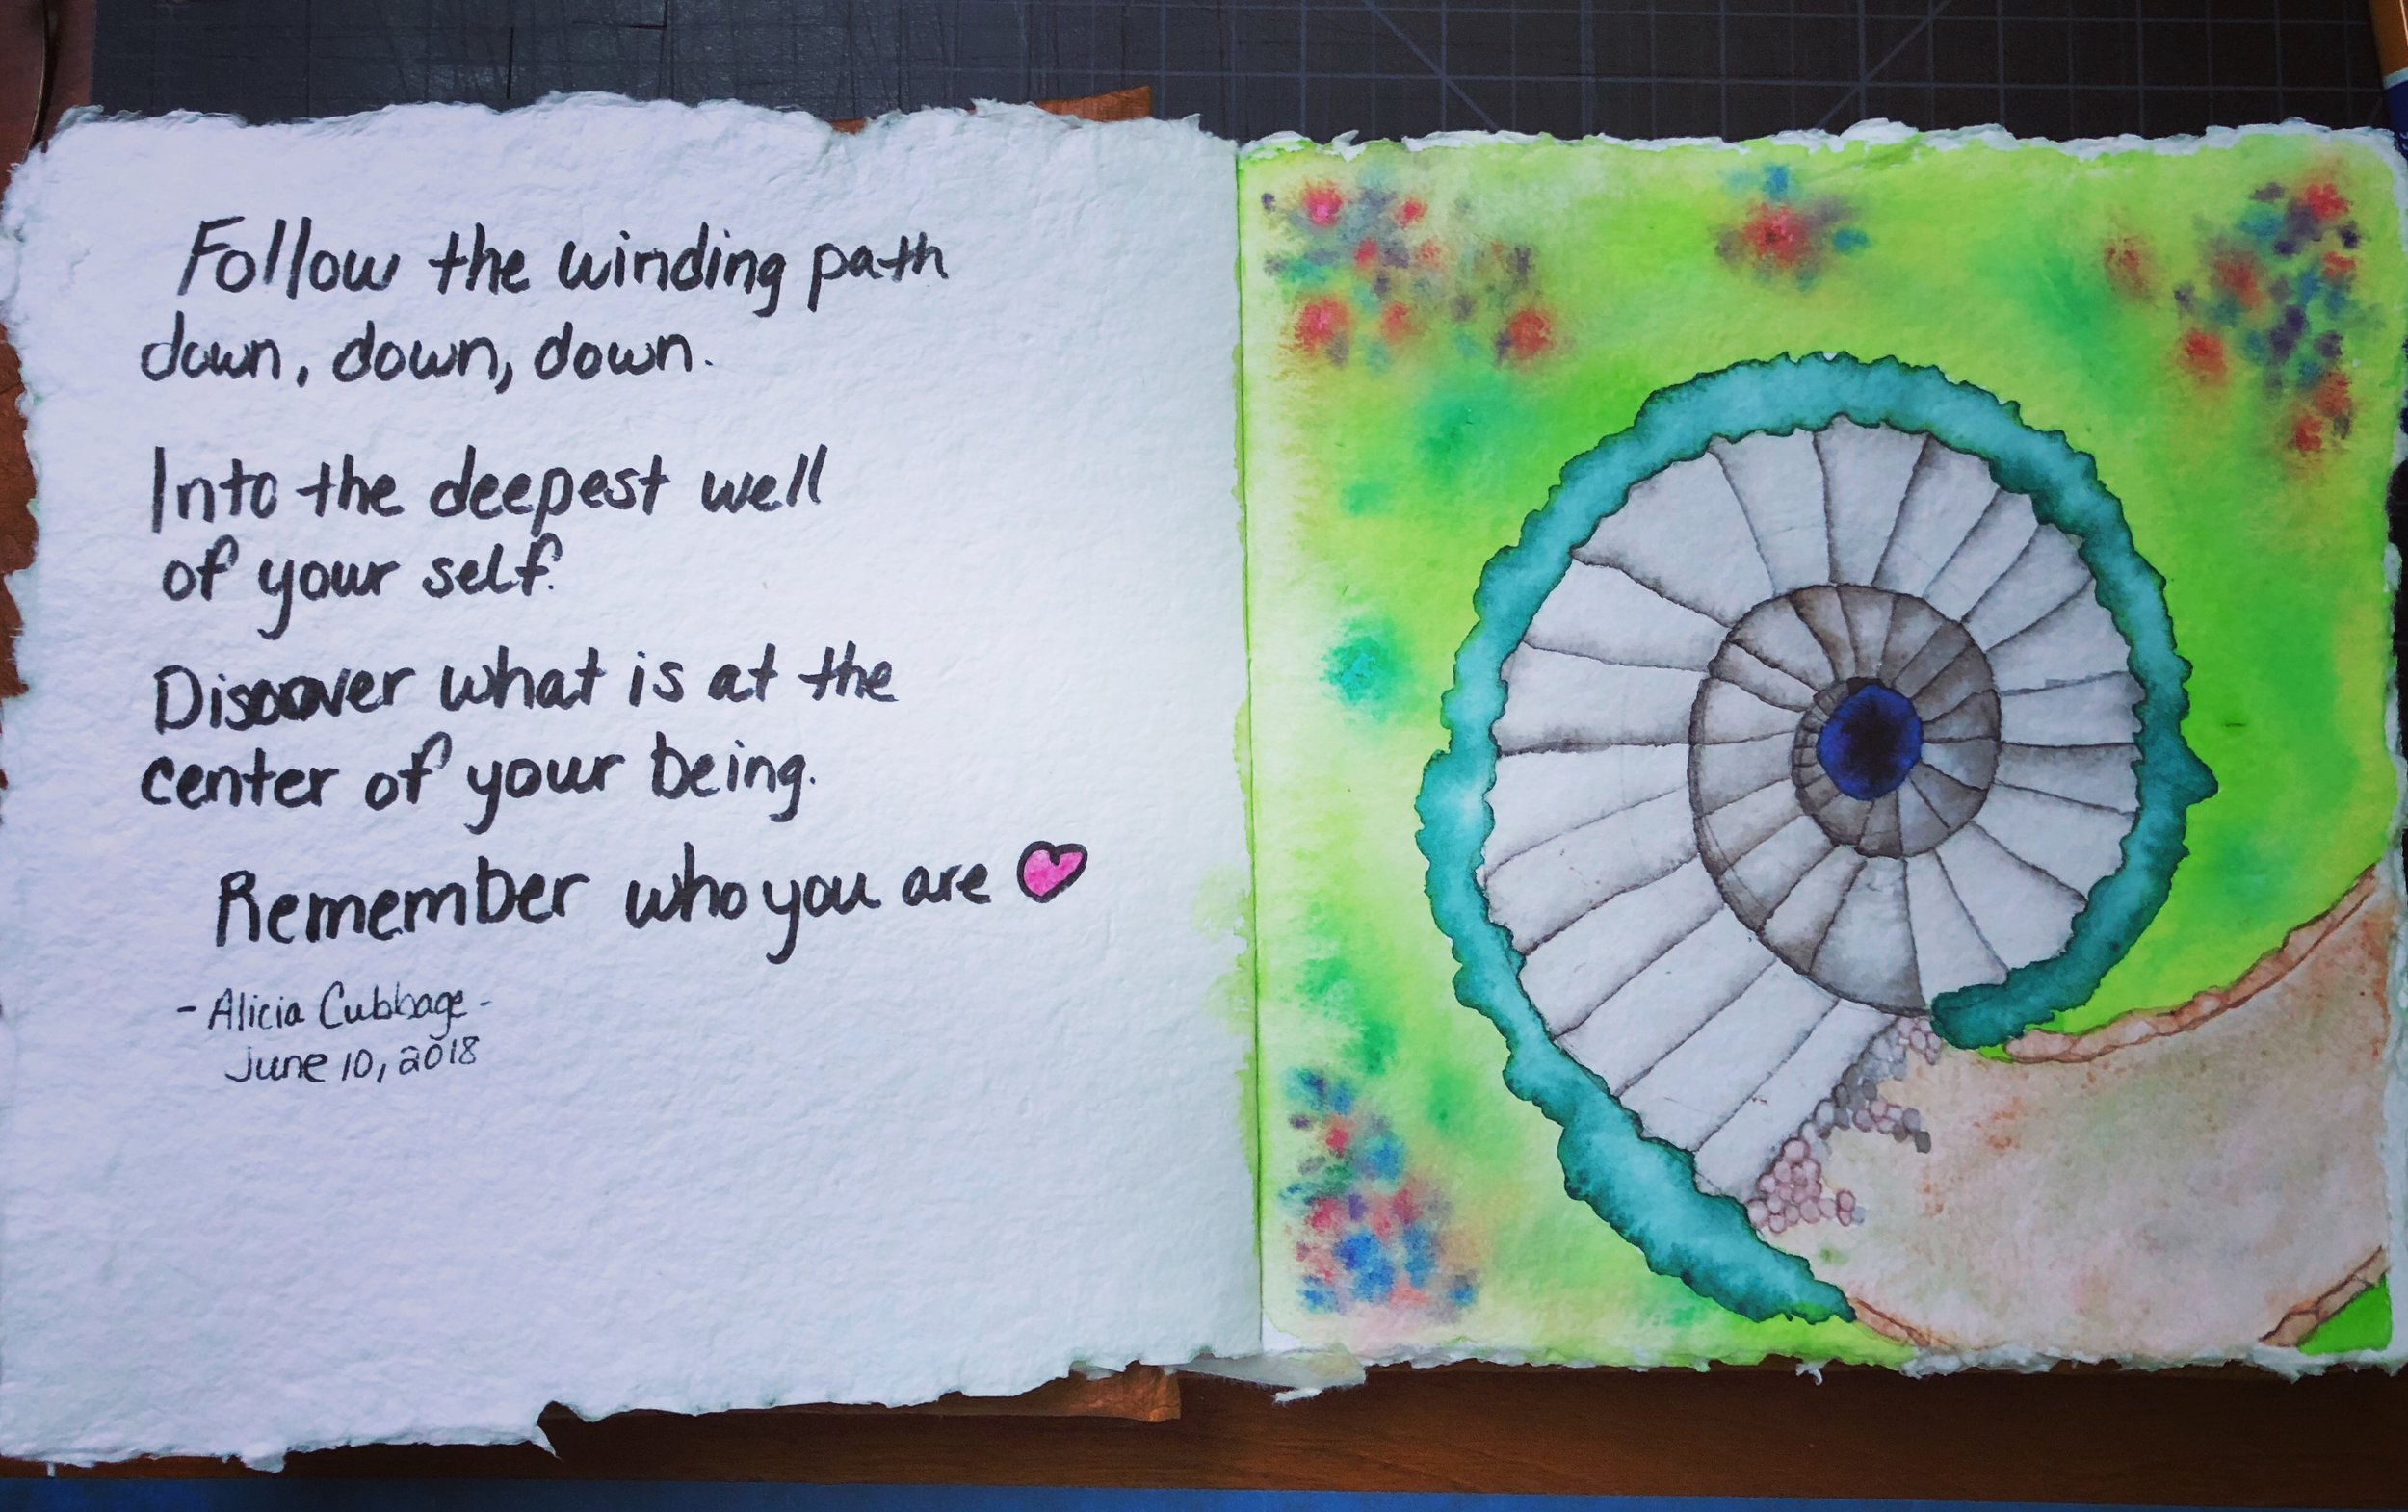 Follow the winding path
down, down, down.
Into the deepest well
of your self.
Discover what is at the
center of your being.
Remember who you are
- Alicia Cubbage -
June 10, 2018